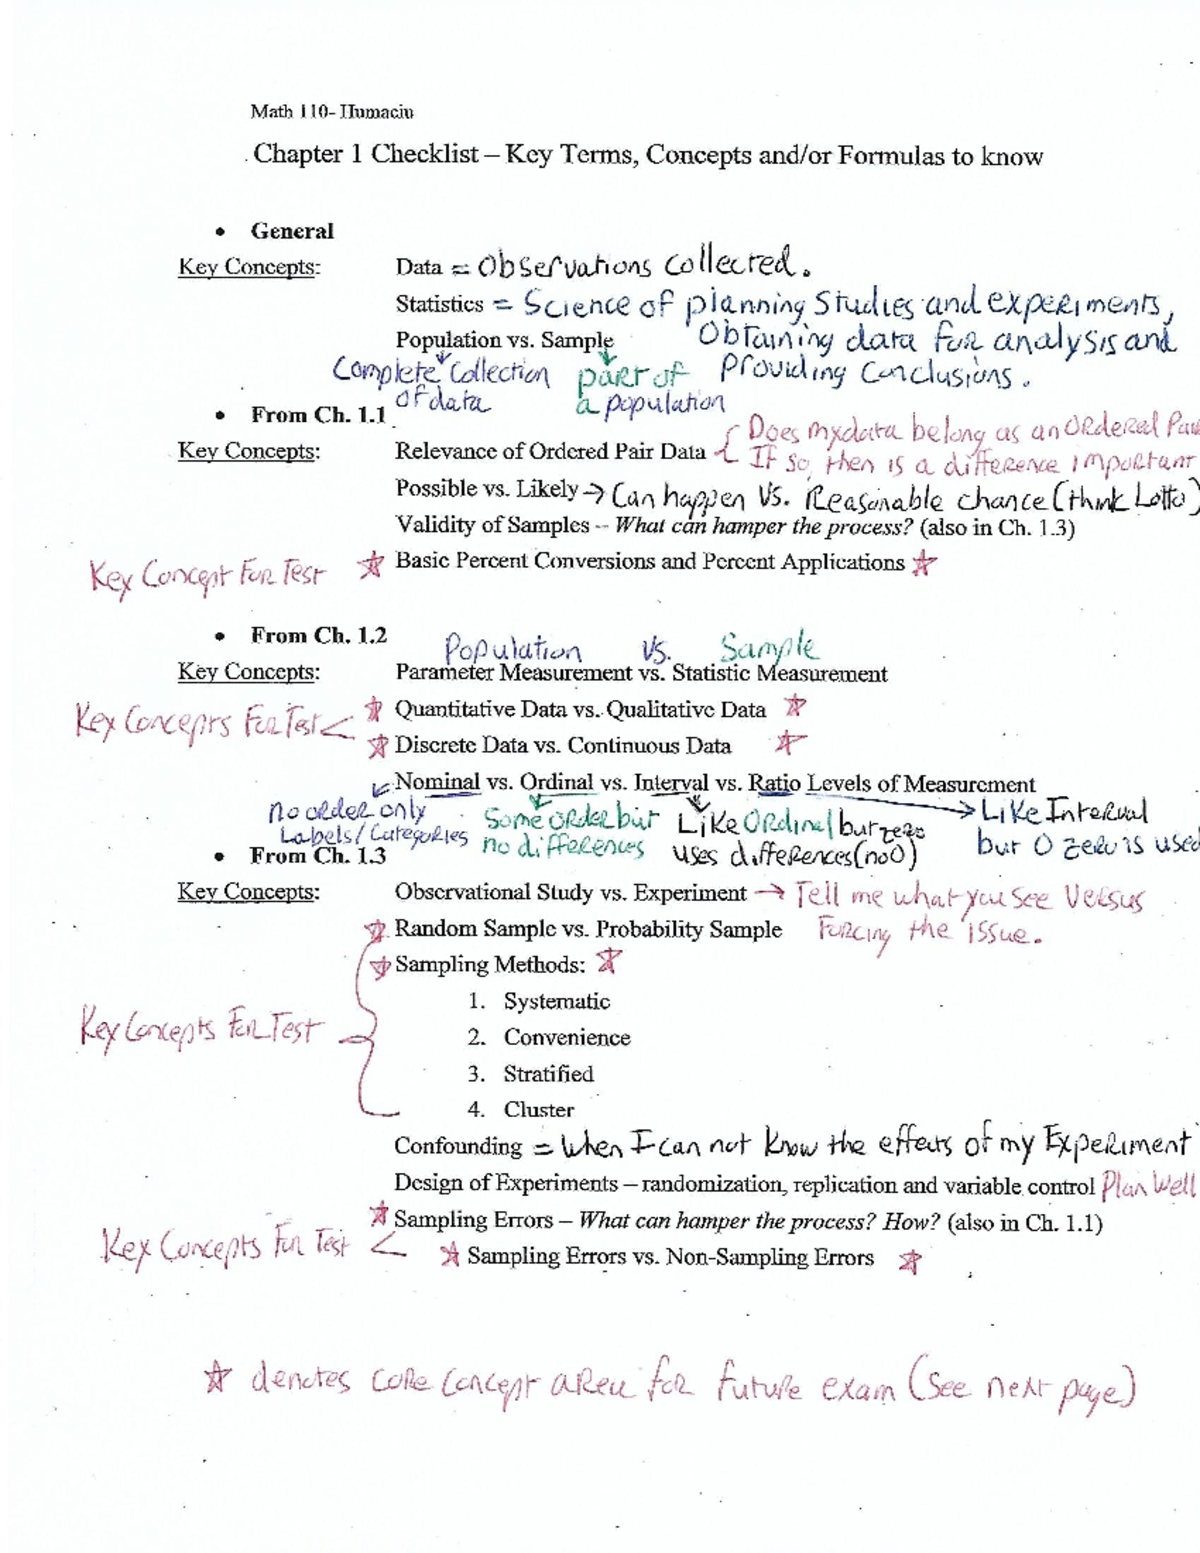 Math 110- Humaciu
Chapter 1 Checklist – Key Terms, Concepts and/or Formulas to know
• General
Key Concepts: Data = Observations collected.
Statistics = Science of planning Studies and experiments,
Population vs. Sample Obtaining data for analysis and
Complete Collection part of providing conclusions.
of data a population
• From Ch. 1.1
Does my data belong as an Ordered Pair
Key Concepts: Relevance of Ordered Pair Data
If so, then is a difference important
Possible vs. Likely → Can happen Vs. Reasonable chance (think Lotto)
Validity of Samples – What can hamper the process? (also in Ch. 1.3)
Key Concept For Test ☆ Basic Percent Conversions and Percent Applications ☆
• From Ch. 1.2
Population Vs. Sample
Key Concepts: Parameter Measurement vs. Statistic Measurement
Key Concepts For Test < ☆ Quantitative Data vs. Qualitative Data ☆
☆ Discrete Data vs. Continuous Data ☆
Nominal vs. Ordinal vs. Interval vs. Ratio Levels of Measurement
no order only Some order but Like Ordinal but zero → Like Interval
Labels/Categories no differences uses differences (no 0) but 0 zero is used
• From Ch. 1.3
Key Concepts: Observational Study vs. Experiment → Tell me what you see Versus
☆ Random Sample vs. Probability Sample Forcing the issue.
☆ Sampling Methods: ☆
1. Systematic
Key Concepts For Test 2. Convenience
3. Stratified
4. Cluster
Confounding = When I can not know the effects of my Experiment
Design of Experiments – randomization, replication and variable control Plan Well
☆ Sampling Errors – What can hamper the process? How? (also in Ch. 1.1)
Key Concepts For Test < ☆ Sampling Errors vs. Non-Sampling Errors ☆
☆ denotes core concept area for future exam (See next page)